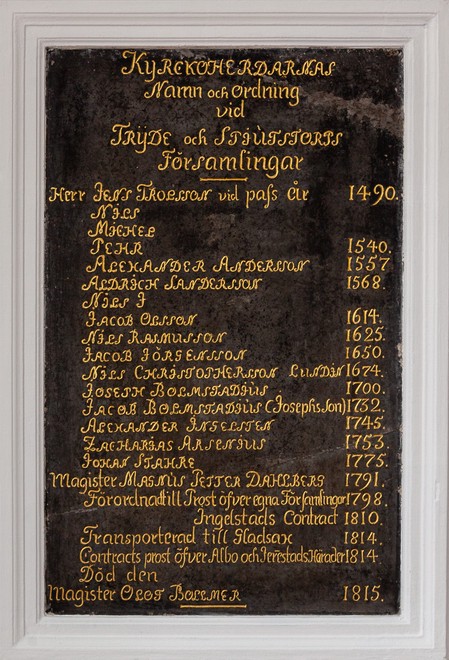 KYRCKOHERDARNAS
Namn och ordning
vid
TRYDE och STIUFSTORPS
Församlingar
Herr JENS TROLSSON vid pass År 1490.
NILS
MICHEL
PEHR 1540.
ALEXANDER ANDERSSON 1557
ALDRICH SANDERSSON 1568.
NILS I
JACOB OLSSON 1614.
NILS RASMUSSON 1625.
JACOB JÖRGENSSON 1650.
NILS CHRISTOTHERSSON LUNDIN 1674.
JOSEPH BOLMSTADIUS 1700.
JACOB BOLMSTADIUS (Josephs Son) 1732.
ALEXANDER INSELSTEN 1745.
ZACHARIAS ARSENIUS 1753.
JOHAN STAHRE 1775.
Magister MAGNUS PETTER DAHLBERG 1791.
Förordnad till Prost öfver egna Församlingar 1798.
Ingelstads Contract 1810.
Transporterad till Gladsax 1814.
Contracts prost öfver Albo och Jerrestads Härader 1814
Död den
Magister OLOF BOLLMER 1815.